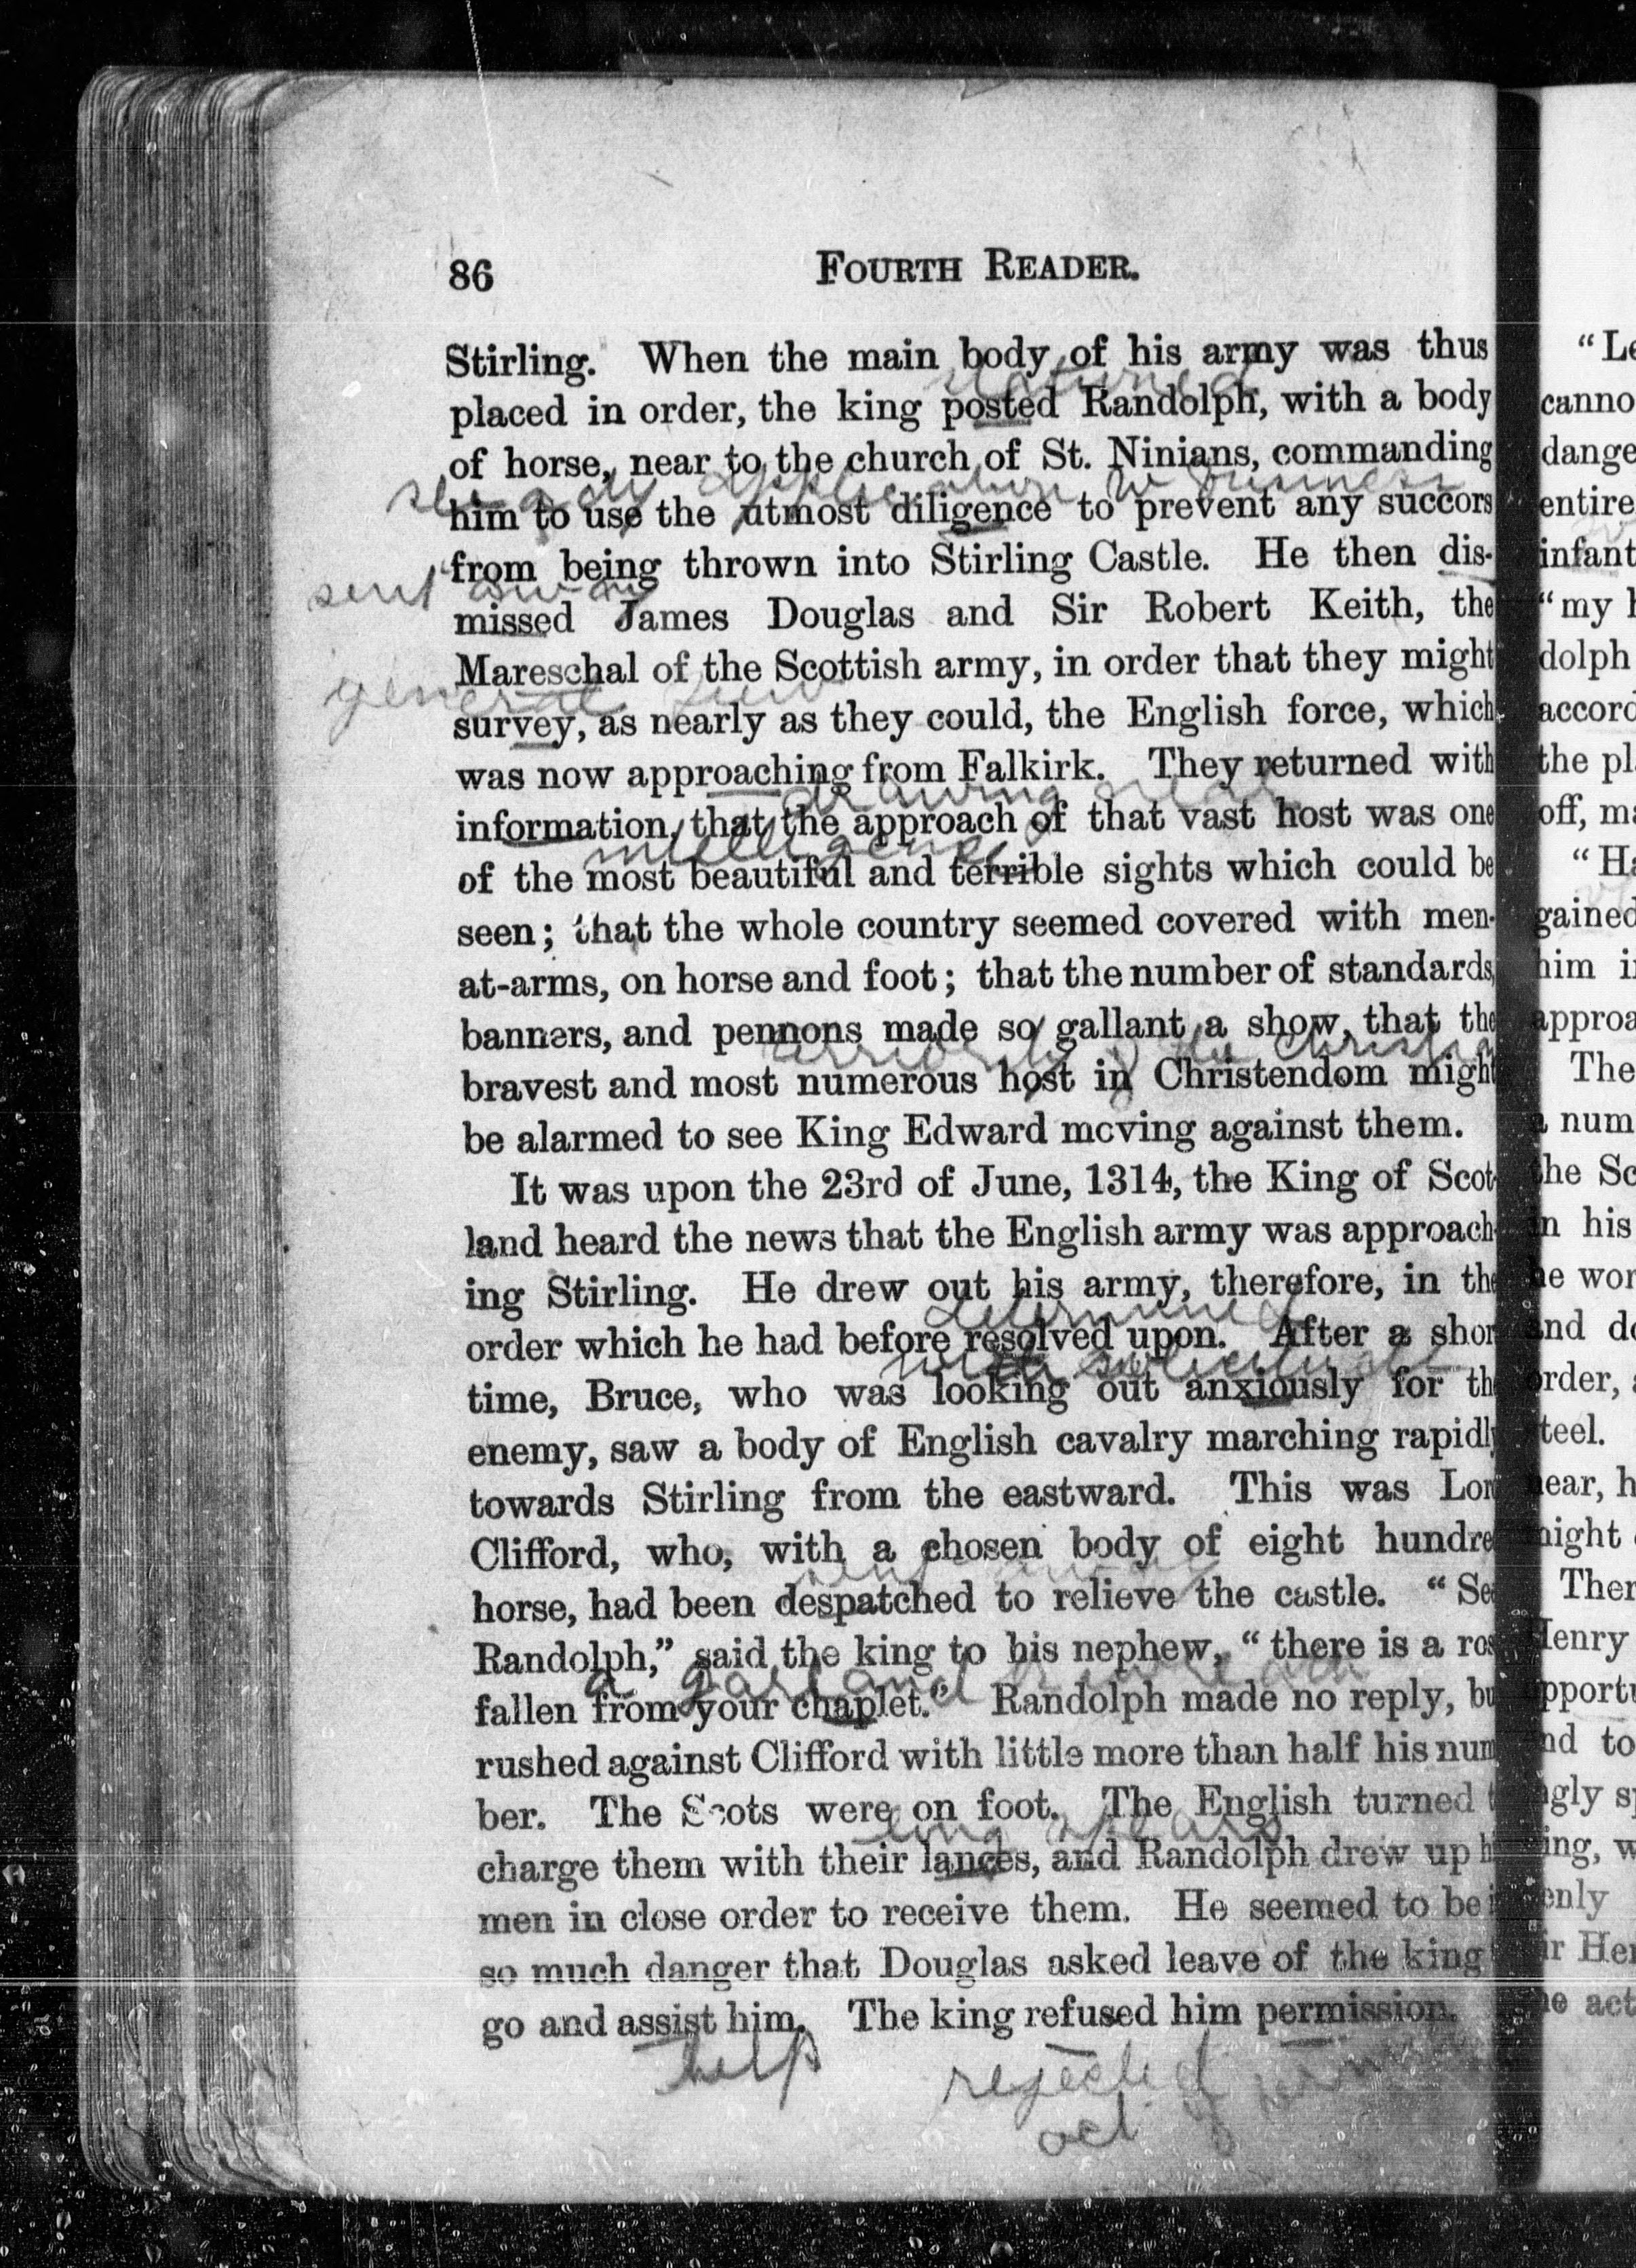 86 FOURTH READER.
Stirling. When the main body of his army was thus
stationed
placed in order, the king posted Randolph, with a body
of horse, near to the church of St. Ninians, commanding
steady application to business
him to use the utmost diligence to prevent any succors
from being thrown into Stirling Castle. He then dis-
sent away
missed James Douglas and Sir Robert Keith, the
Mareschal of the Scottish army, in order that they might
general view
survey, as nearly as they could, the English force, which
was now approaching from Falkirk. They returned with
drawing near
information, that the approach of that vast host was one
intelligence
of the most beautiful and terrible sights which could be
seen; that the whole country seemed covered with men-
at-arms, on horse and foot; that the number of standards,
banners, and pennons made so gallant a show, that the
of the Christian
bravest and most numerous host in Christendom might
be alarmed to see King Edward moving against them.
It was upon the 23rd of June, 1314, the King of Scot-
land heard the news that the English army was approach-
ing Stirling. He drew out his army, therefore, in the
determined
order which he had before resolved upon. After a shor
with
time, Bruce, who was looking out anxiously for th
enemy, saw a body of English cavalry marching rapidly
towards Stirling from the eastward. This was Lor
Clifford, who, with a chosen body of eight hundre
sent away
horse, had been despatched to relieve the castle. "See
Randolph," said the king to his nephew, "there is a ros
a garland or wreath
fallen from your chaplet." Randolph made no reply, bu
rushed against Clifford with little more than half his num
ber. The Scots were on foot. The English turned t
long spears
charge them with their lances, and Randolph drew up hi
men in close order to receive them. He seemed to be i
so much danger that Douglas asked leave of the king
go and assist him. The king refused him permission.
help rejected
act of
"Le
canno
dange
entire
infant
"my h
dolph
accord
the pl
off, ma
"Ha
gained
him i
approa
The
a num
the Sc
in his
he wor
and do
order, a
steel.
near, h
might
Ther
Henry
pportu
nd to
ngly sp
ing, w
enly
ir Her
he act